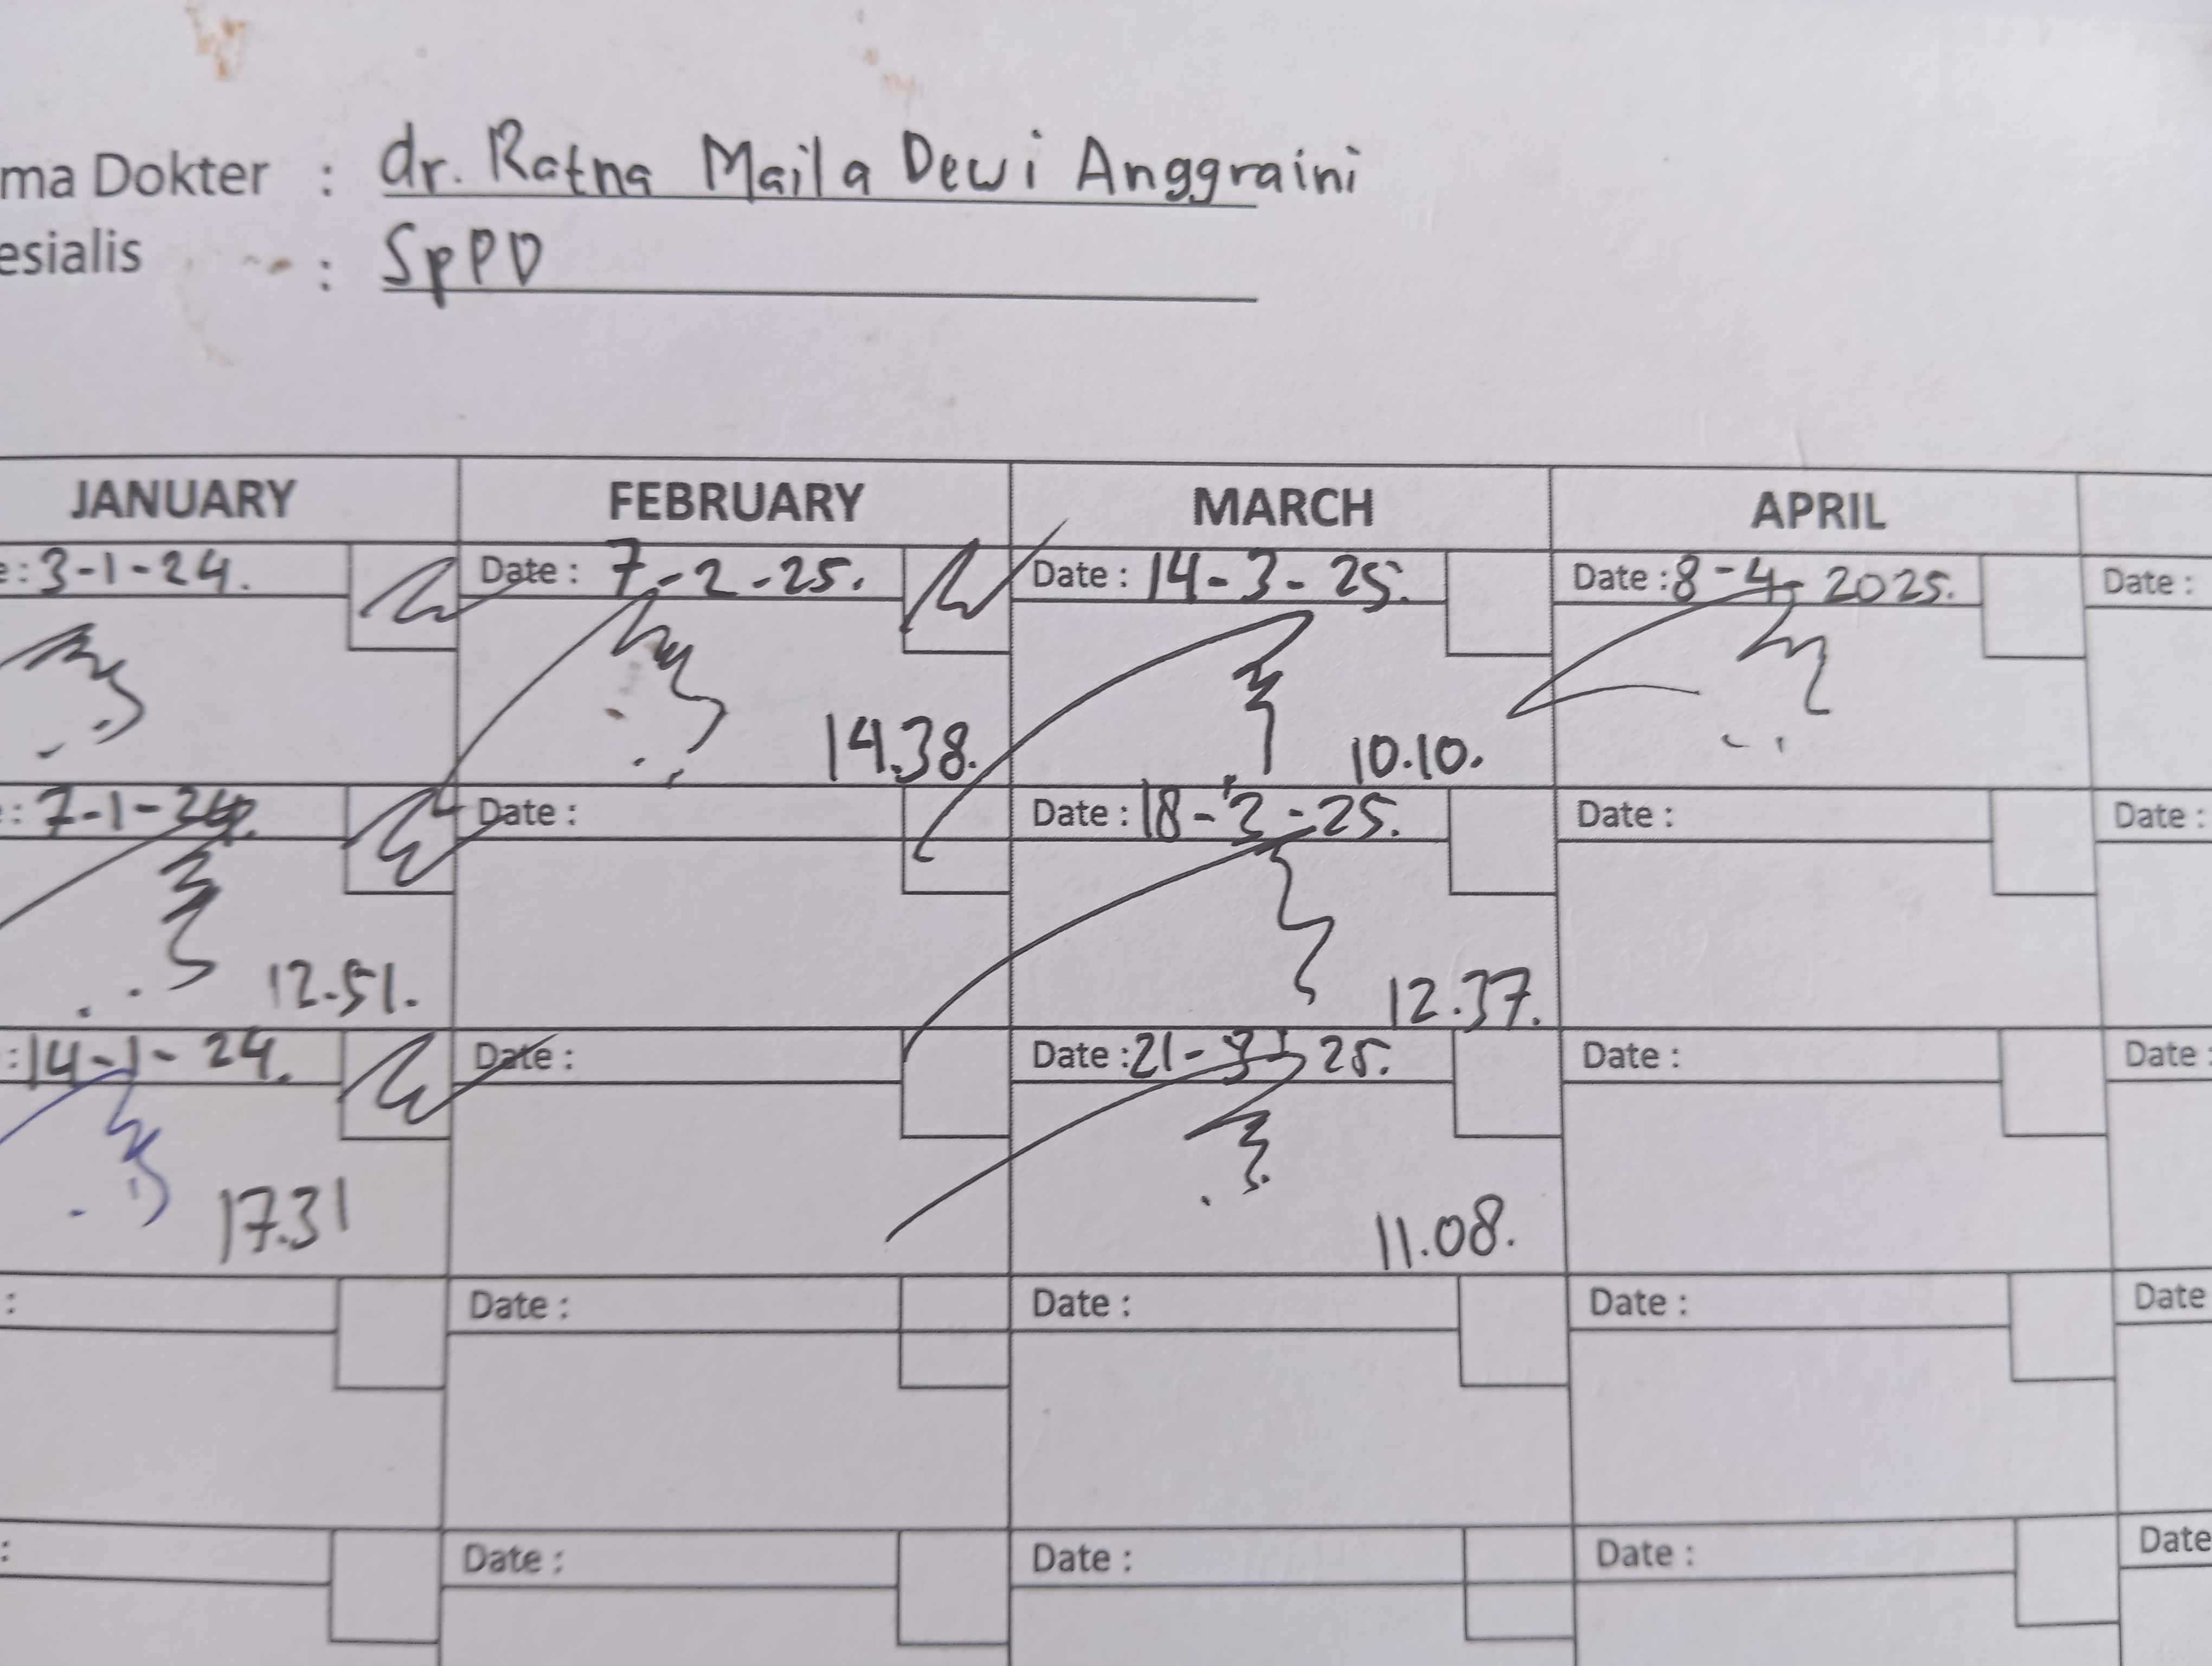 ma Dokter : dr. Ratna Maila Dewi Anggraini
esialis : SpPD
JANUARY FEBRUARY MARCH APRIL
e : 3-1-24. Date : 7-2-25. Date : 14-3-25. Date : 8-4-2025. Date :
14.38. 10.10.
: 7-1-24. Date : Date : 18-3-25. Date : Date :
12.51. 12.37.
: 14-1-24. Date : Date : 21-3-25. Date : Date :
17.31 11.08.
: Date : Date : Date : Date
: Date : Date : Date : Date